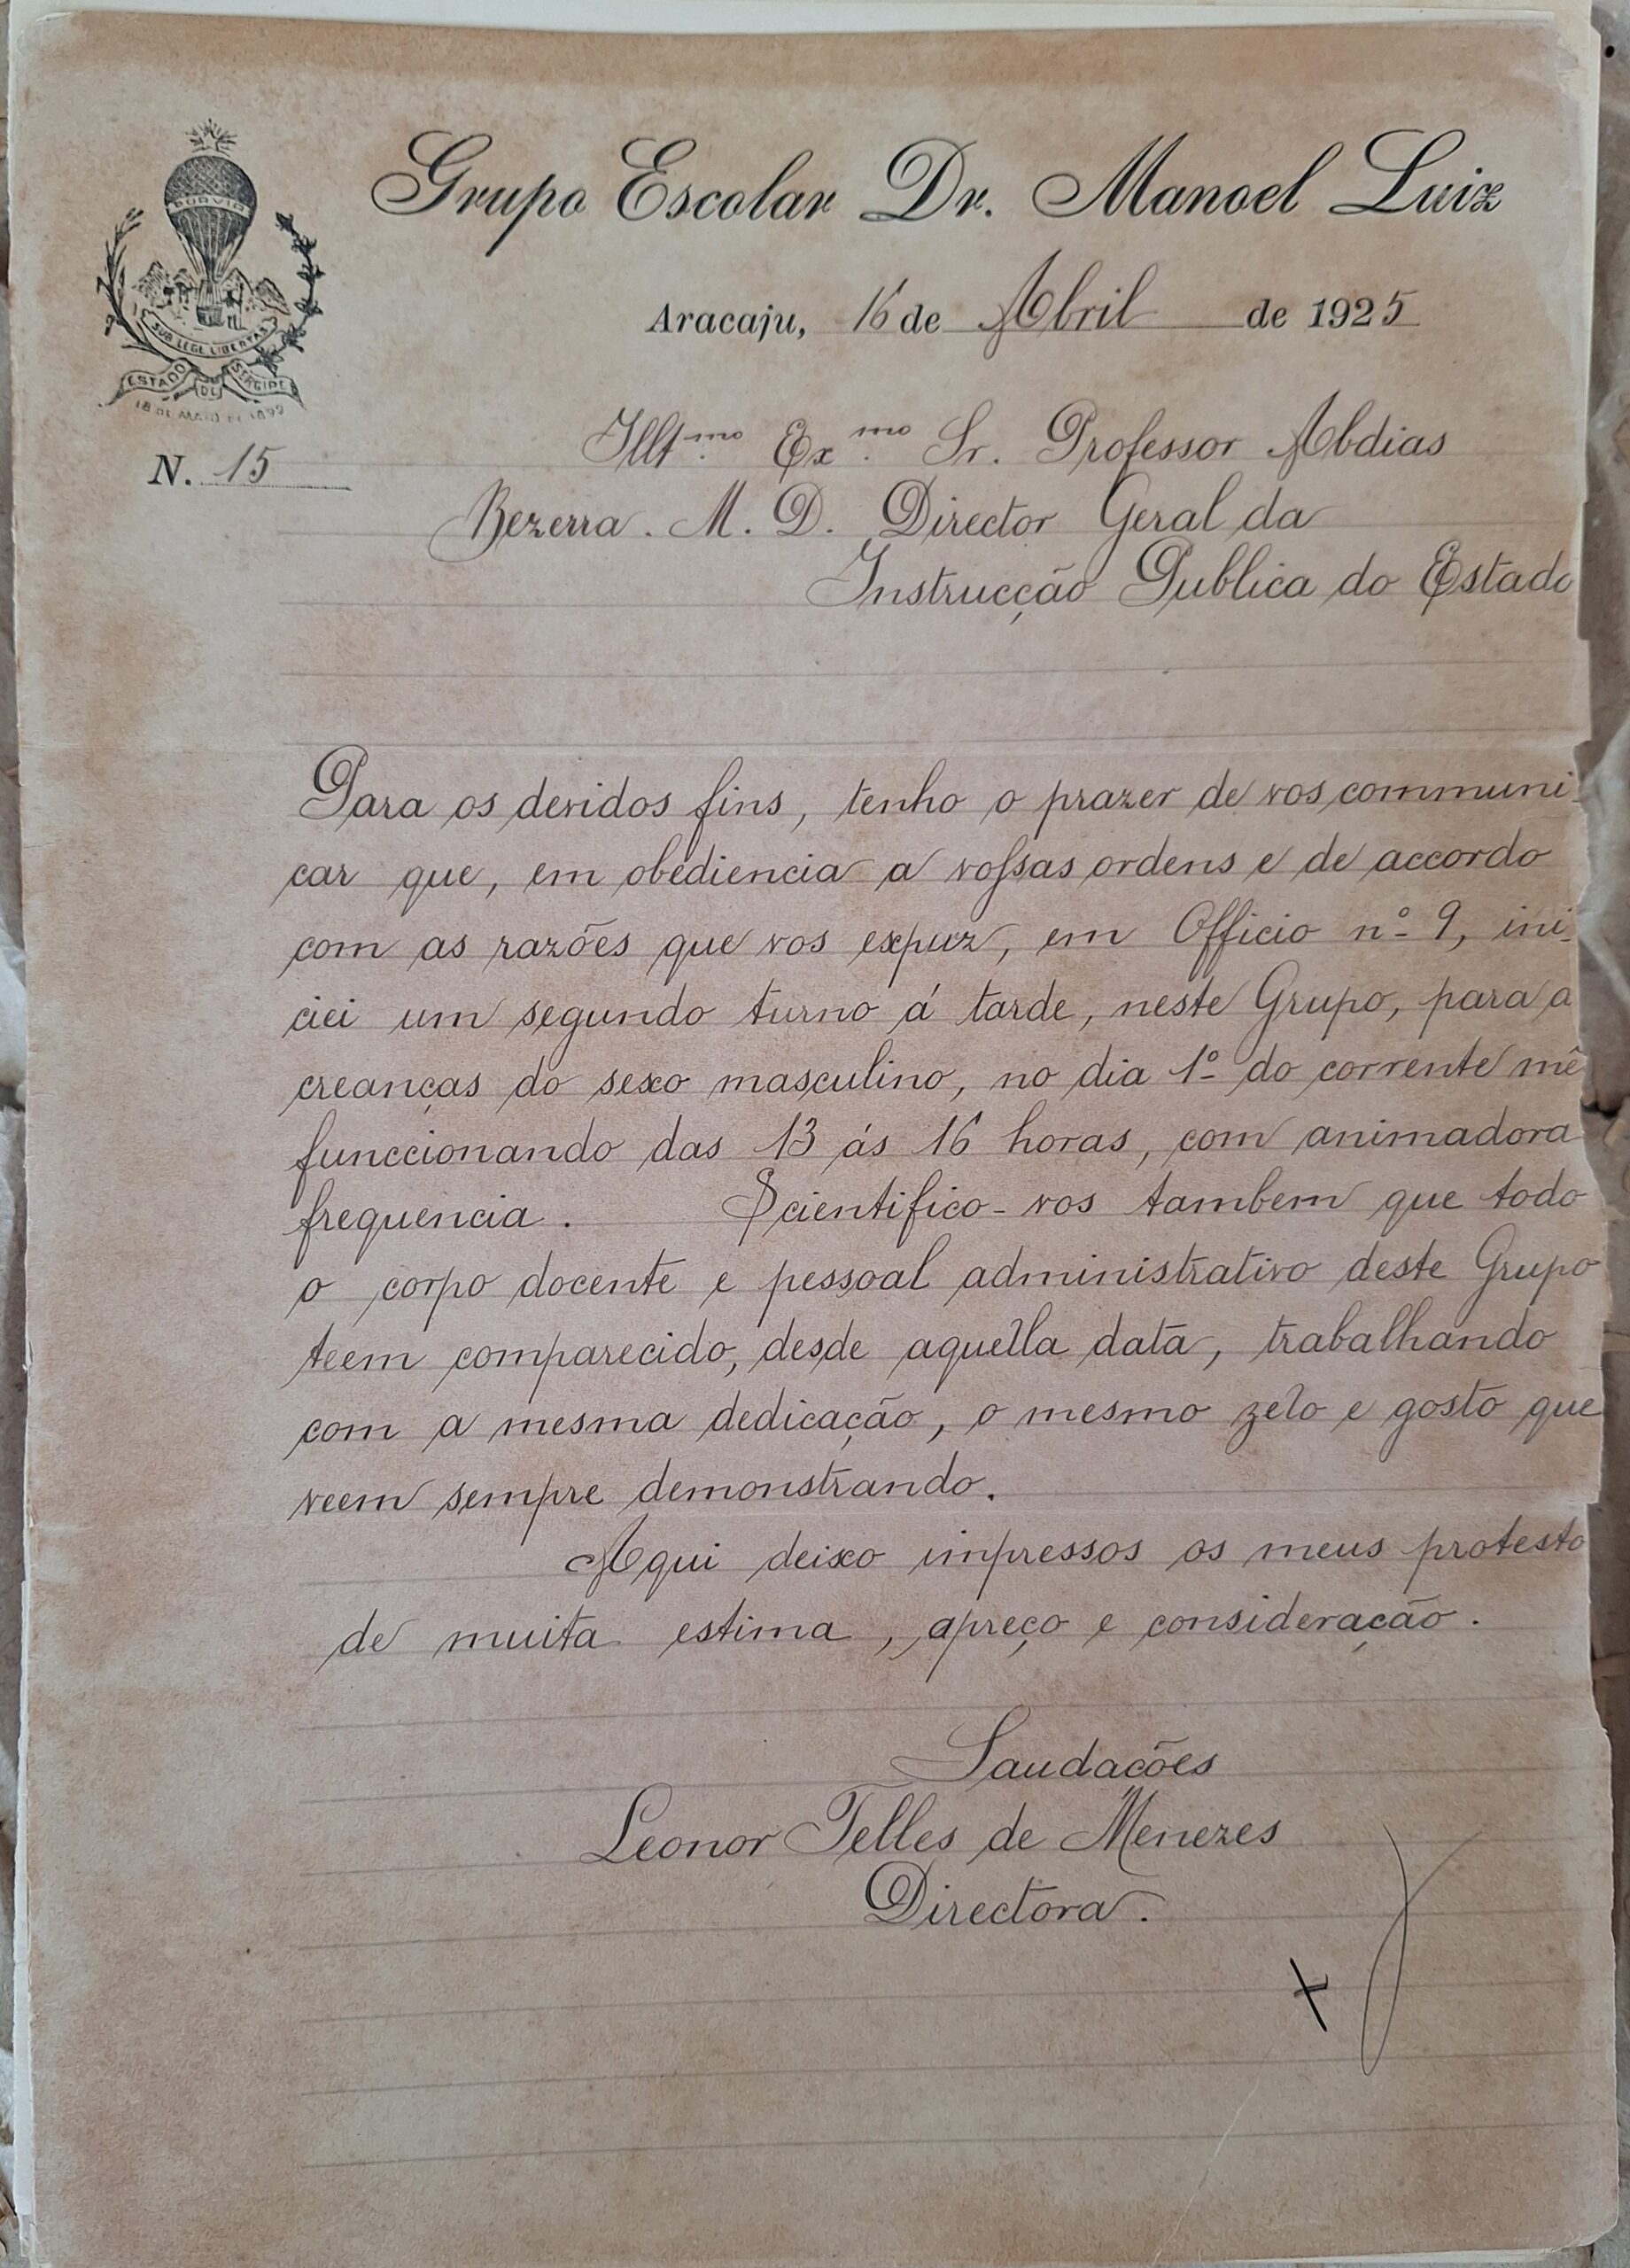 Grupo Escolar Dr. Manoel Luiz
PORVIR
SUB LEGE LIBERTAS
ESTADO DE SERGIPE
18 DE MAIO DE 1892
Aracaju, 16 de Abril de 1925
N. 15
Illmo. Exmo. Sr. Professor Abdias
Bezerra. M. D. Director Geral da
Instrucção Publica do Estado
Para os devidos fins, tenho o prazer de vos communi-
car que, em obediencia a vossas ordens e de accordo
com as razões que vos expuz, em Officio nº 9, ini-
ciei um segundo turno á tarde, neste Grupo, para a
creanças do sexo masculino, no dia 1º do corrente mê
funccionando das 13 ás 16 horas, com animadora
frequencia. Scientifico-vos tambem que todo
o corpo docente e pessoal administrativo deste Grupo
teem comparecido, desde aquella data, trabalhando
com a mesma dedicação, o mesmo zelo e gosto que
veem sempre demonstrando.
Aqui deixo impressos os meus protesto
de muita estima, apreço e consideração.
Saudacões
Leonor Telles de Menezes
Directora.